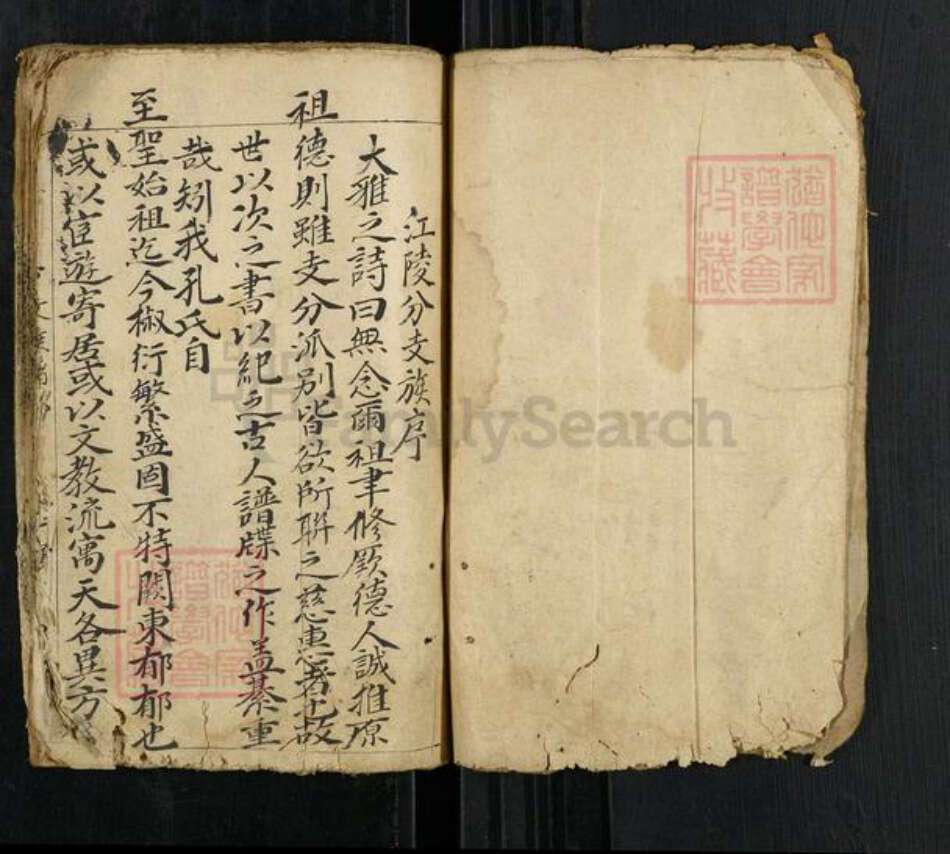 江陵分支族序
大雅之詩曰無念爾祖聿修厥德人誠推原
祖德則雖支分派別皆欲所聯之慈惠著也故
世以次之書以紀之古人譜牒之作蓋綦重
哉矧我孔氏自
至聖始祖迄今椒衍繁盛固不特闕東郁郁也
或以宦遊寄居或以文教流寓天各異方
FamilySearch